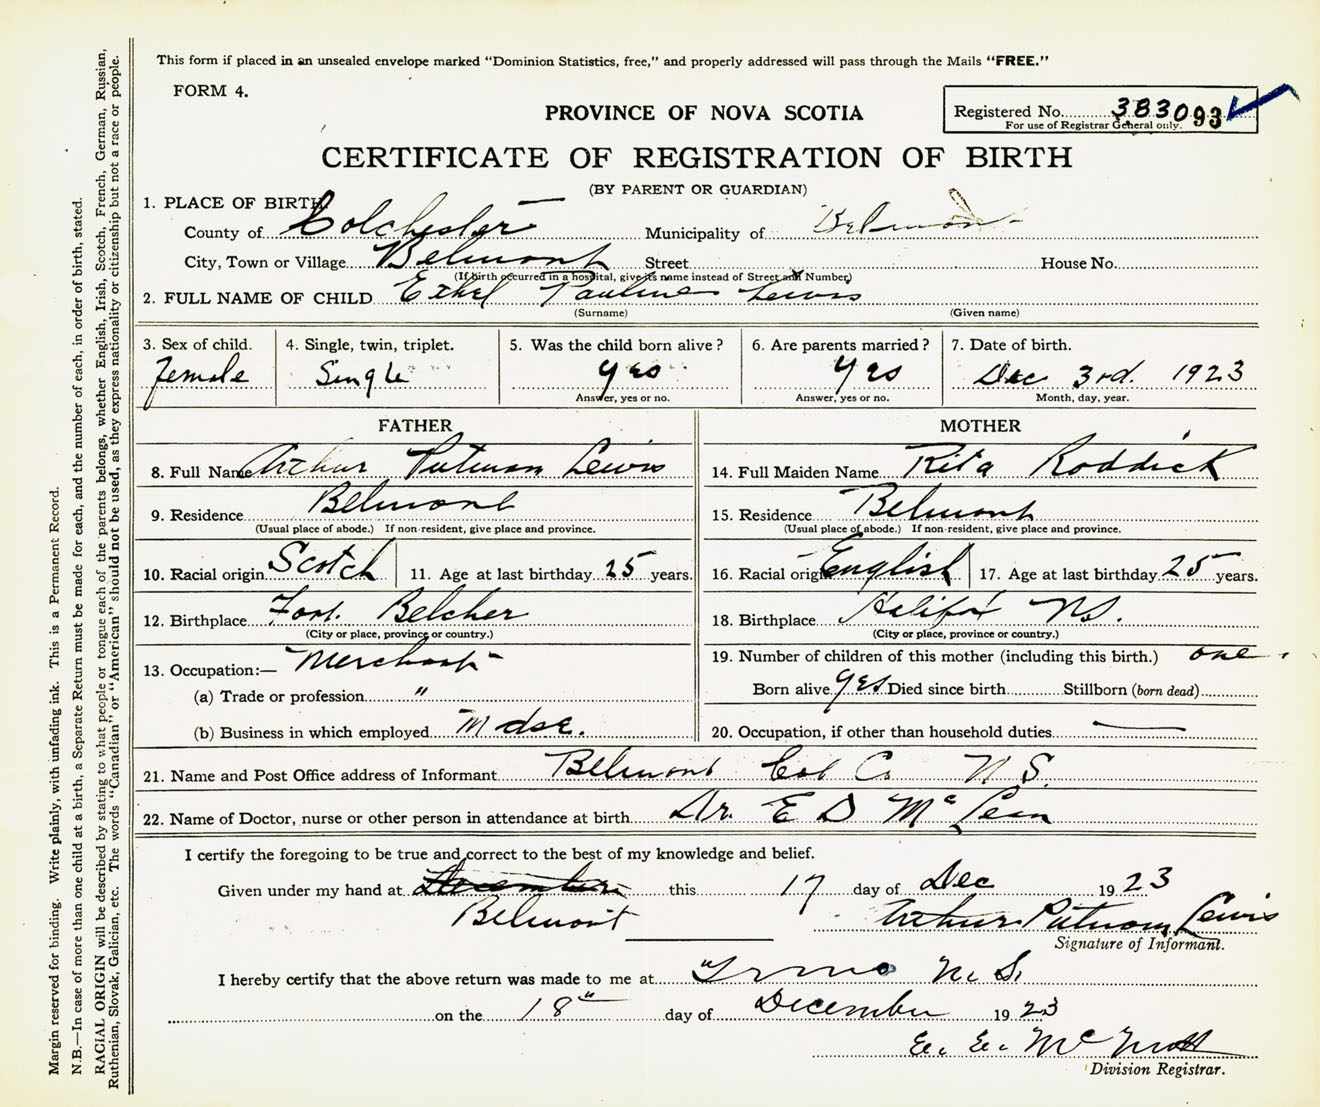 This form if placed in an unsealed envelope marked "Dominion Statistics, free," and properly addressed will pass through the Mails "FREE."
FORM 4.
PROVINCE OF NOVA SCOTIA
Registered No. 383093
For use of Registrar General only.
CERTIFICATE OF REGISTRATION OF BIRTH
(BY PARENT OR GUARDIAN)
1. PLACE OF BIRTH
County of Colchester Municipality of Belmont
City, Town or Village Belmont Street House No.
(If birth occurred in a hospital, give its name instead of Street and Number)
2. FULL NAME OF CHILD Ethel Pauline Lewis
(Surname) (Given name)
3. Sex of child. 4. Single, twin, triplet. 5. Was the child born alive? 6. Are parents married? 7. Date of birth.
female Single yes yes Dec 3rd. 1923
Answer, yes or no. Answer, yes or no. Month, day, year.
FATHER MOTHER
8. Full Name Arthur Putnam Lewis 14. Full Maiden Name Rita Roddick
9. Residence Belmont 15. Residence Belmont
(Usual place of abode.) If non-resident, give place and province. (Usual place of abode.) If non-resident, give place and province.
10. Racial origin Scotch 11. Age at last birthday 25 years. 16. Racial origin English 17. Age at last birthday 25 years.
12. Birthplace Fort Belcher 18. Birthplace Halifax NS.
(City or place, province or country.) (City or place, province or country.)
13. Occupation:— Merchant 19. Number of children of this mother (including this birth.) one
(a) Trade or profession " Born alive yes Died since birth Stillborn (born dead)
(b) Business in which employed Mdse. 20. Occupation, if other than household duties —
21. Name and Post Office address of Informant Belmont Col Co. N S.
22. Name of Doctor, nurse or other person in attendance at birth Dr. E D McLean
I certify the foregoing to be true and correct to the best of my knowledge and belief.
Given under my hand at this 17 day of Dec 1923
Belmont Arthur Putnam Lewis
Signature of Informant.
I hereby certify that the above return was made to me at N. S.
on the 18" day of December 1923
E. E. 
Division Registrar.
Margin reserved for binding. Write plainly, with unfading ink. This is a Permanent Record.
N.B.—In case of more than one child at a birth, a Separate Return must be made for each, and the number of each, in order of birth, stated.
RACIAL ORIGIN will be described by stating to what people or tongue each of the parents belongs, whether English, Irish, Scotch, French, German, Russian,
Ruthenian, Slovak, Galician, etc. The words "Canadian" or "American" should not be used, as they express nationality or citizenship but not a race or people.